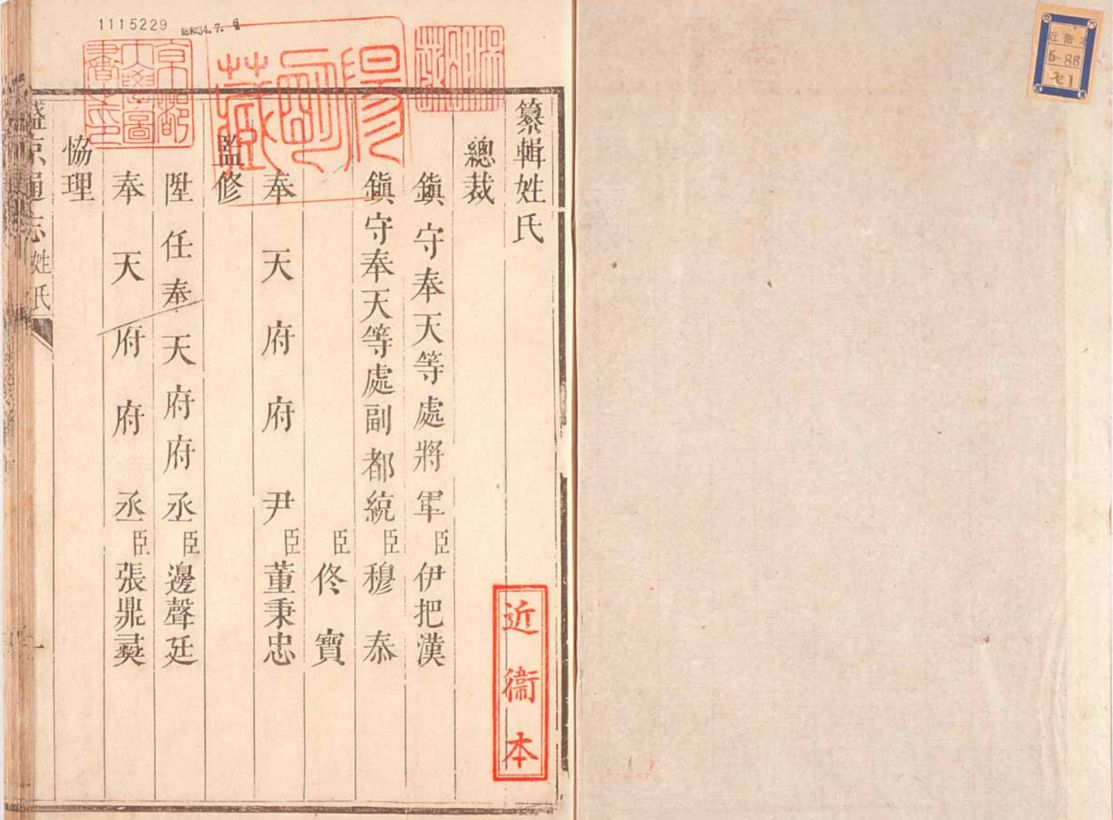 1115229
昭和34.7.6
京都帝國大學圖書之印
陽明藏
纂輯姓氏
總裁
鎮守奉天等處將軍臣伊把漢
鎮守奉天等處副都統臣穆泰
臣佟寶
奉天府府尹臣董秉忠
監修
陞任奉天府府丞臣邊聲廷
奉天府府丞臣張鼎彝
協理
盛京通志 姓氏 一
近衛本
近衛本
5-86
セ1